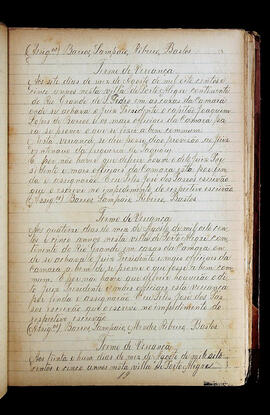 (Assig.dos) Barros, Sampaio, Ribeiro, Bastos
Termo de Veriança
Aos sete dias do mez de Agosto de mil oito centos e
cinco annos nesta villa de Porto Alegre continente
do Rio Grande de S. Pedro em as casas da Camara
onde se achava o Juiz Presidente o capitão Joaquim
de Barros e os mais officiaes da Camara pa-
ra se prover o que se fosse a bem commum.
Nesta veriança se deu posse, digo, provisão ao Juiz
da freguezia de Taquary.
E por não haver que deferir houve o dito Juiz Pre-
sidente e mais officiaes da Camara esta por fin-
da e assignarão. E eu Felis José dos Passos escrivão
que o escrevo no impedimento do respectivo escrivão
(Assig.dos) Barros, Sampaio, Ribeiro, Bastos.
Termo de Veriança
Aos quatorze dias do mez de Agosto de mil oito cen-
tos e cinco annos nesta villa de Porto Alegre con-
tinente do Rio Grande, em casas da Camara on-
de se achava o Juiz Presidente e mais officiaes da
Camara, a bem de se prover o que fosse a bem com-
mum. E por não haver que deferir houverão o di-
to Juiz Presidente e mais officiaes esta veriança
por finda e assignarão. E eu Felis José dos Pas-
sos escrivão que o escrevo no impedimento do
respectivo escrivão
(Assig.dos) Barros, Sampaio, Ribeiro, Bastos
Termo de Veriança
Aos trinta e hum dias do mez de Agosto de mil oito
centos e cinco annos nesta villa de Porto Alegre